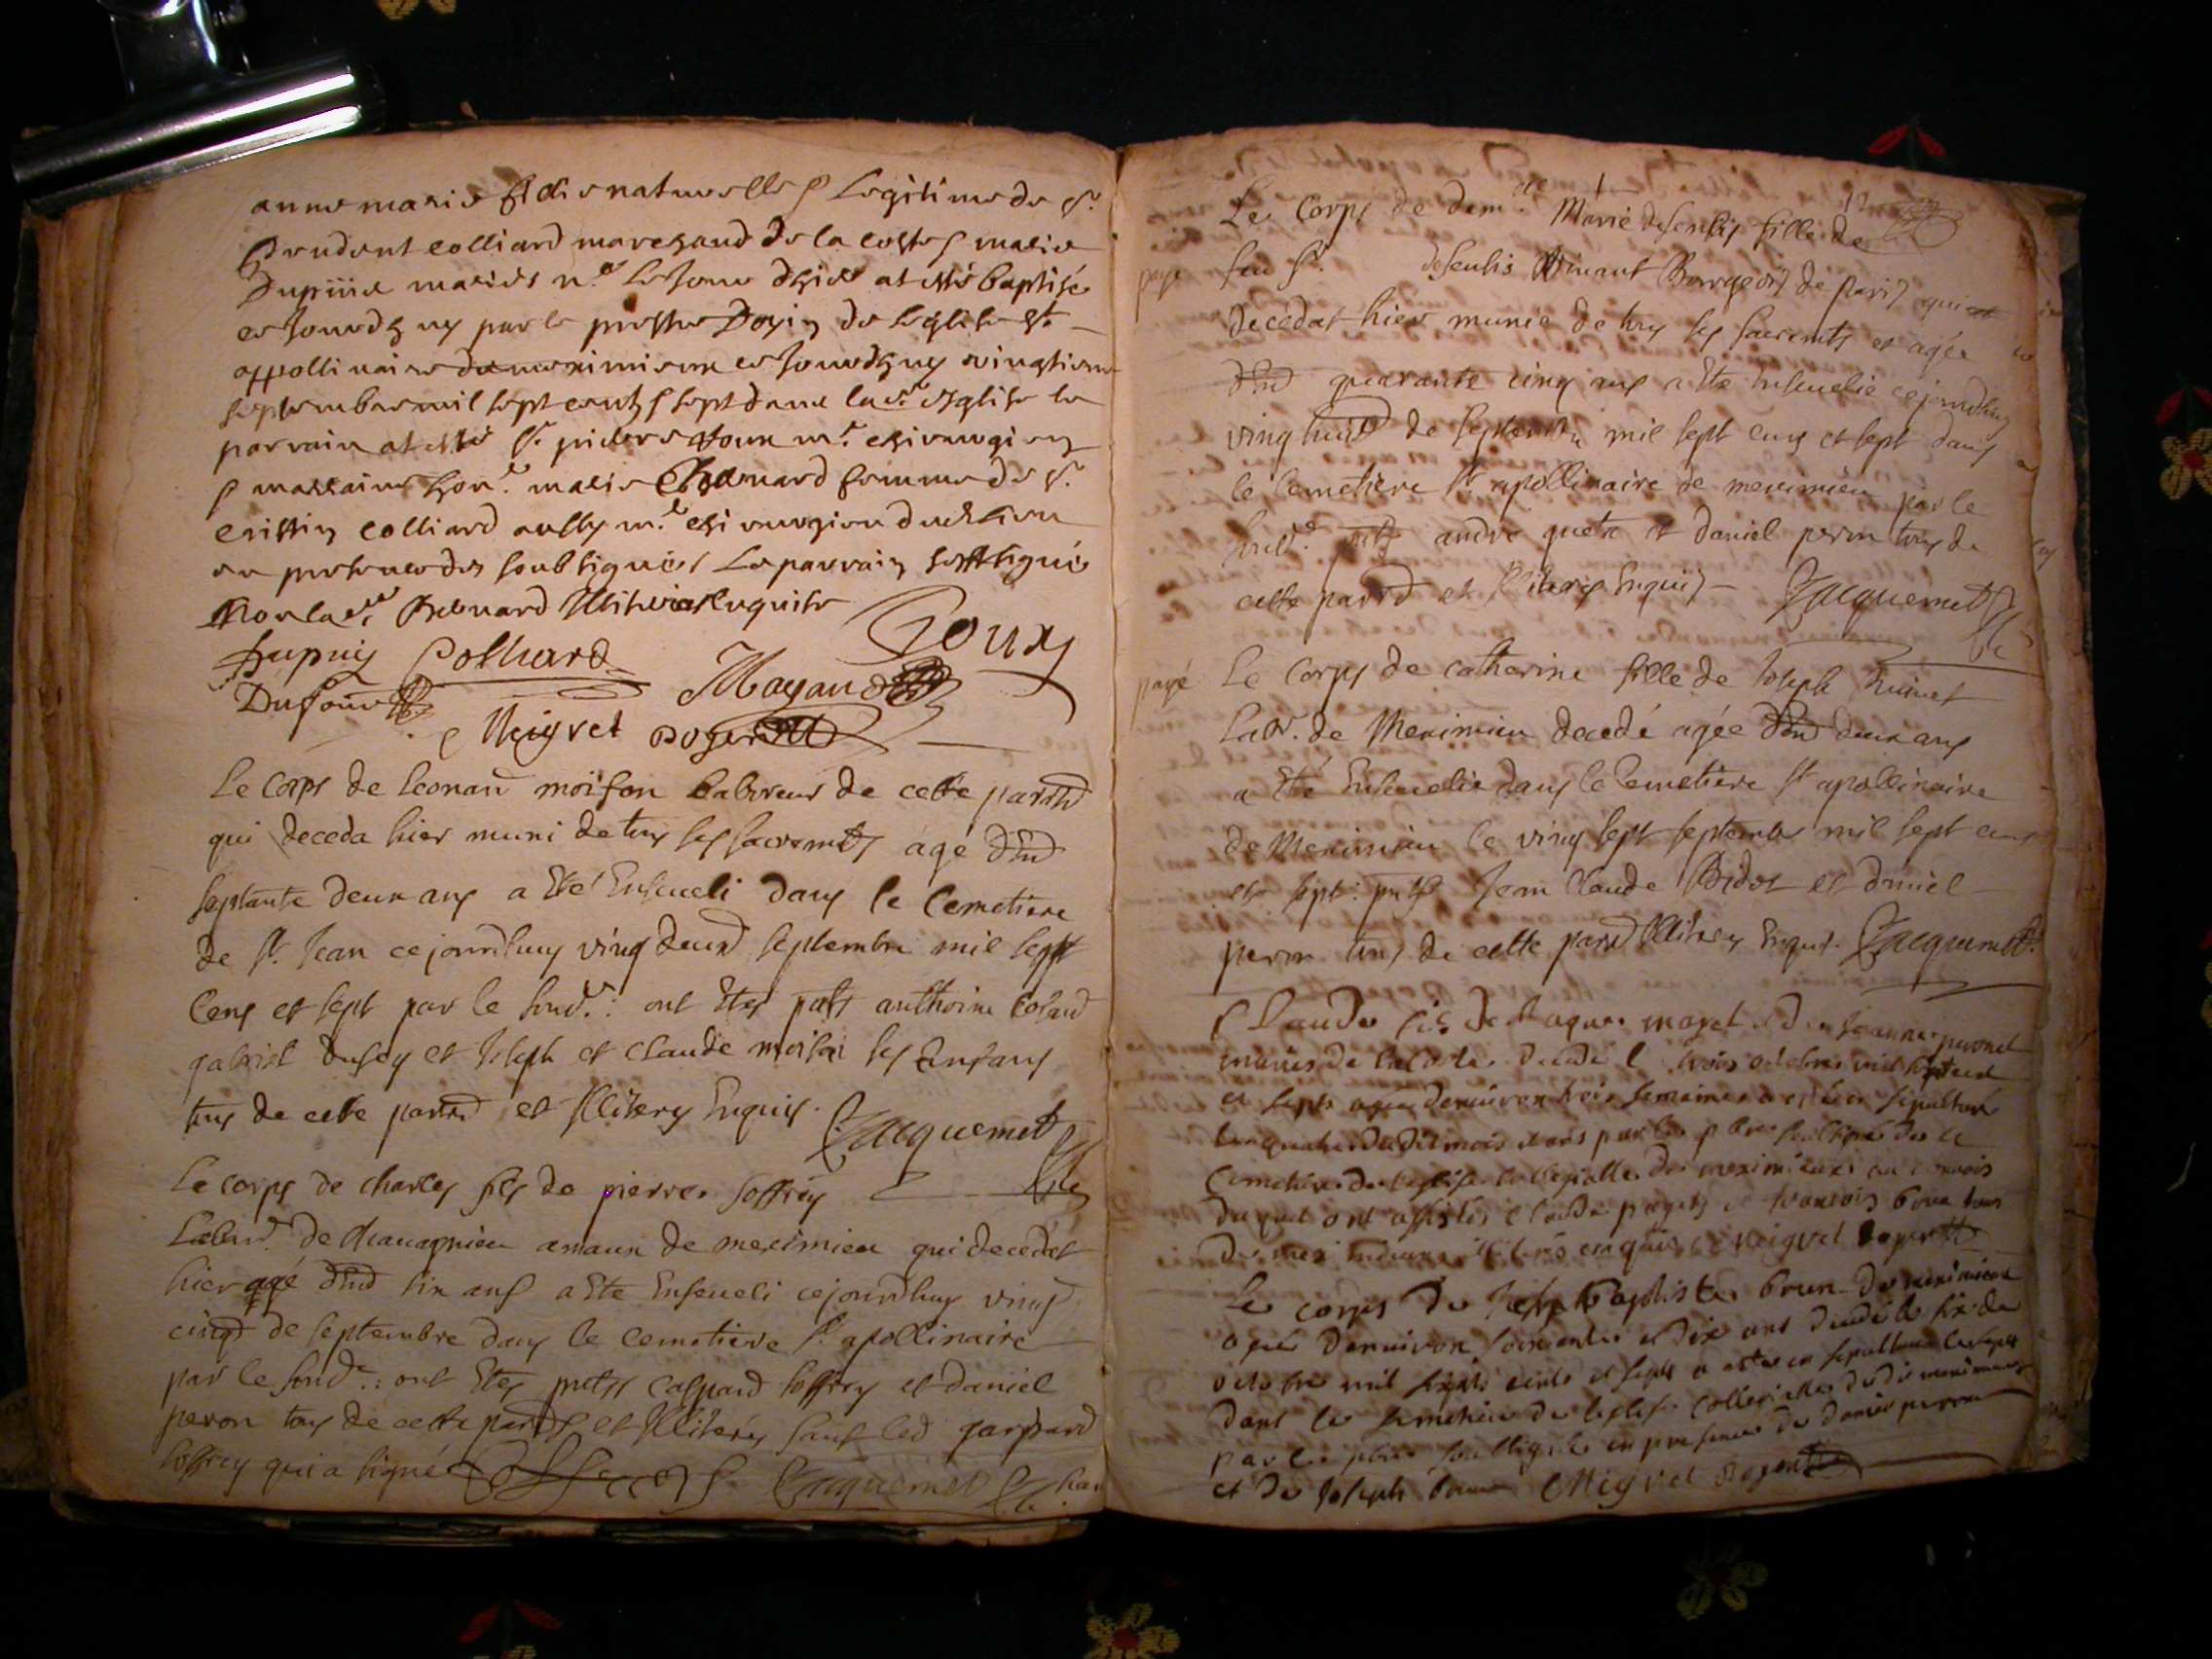 anne marie fillie naturelle & legitime de Sr.
prudent colliard marchand de la coste & marie
Dupuiie mariés née le jour dhier at esté baptisé
ce jourdhuy par le prestre Doyin de leglise St.
appollinaire de meximieux ce jourdhuy vingtieme
septembre mil sept cents & sept dans lad. esglise le
parrain at esté Sr. pierre Roux me. chirurgien
& marraine hon. marie Bernard femme de Sr.
cristin colliard aussy me. chirurgien du
en presence des soubsignés Le parrain soubsigné
Non lad. Bernard illiterée enquise
Dupuy Colliard Roux
Dufour Mayand
Meigret Doyen
Le Corps de Leonard moison Laboreur de cette parsse
qui deceda hier muni de tous les sacremts agé dEnd
septante deux ans a Eté Enseveli dans le Cemetiere
de St. Jean cejourdhuy vingt deux septembre mil sept
Cens et sept par le soud.: ont Etes pnts anthoine
gabriel et Joseph et Claude moison ses Enfans
tous de cette parsse et Illiterez Enquis. Jacquemet
Le corps de charles fils de pierre Joffrey
Labr. de Chavagnieu annexe de meximieu qui decedat
hier agé dEnd six ans a Ete Enseveli cejourdhuy vingt
cinq de septembre dans le cemetiere St. apollinaire
par le soud.: ont Etes pnts Caspard Joffrey et Daniel
peron tous de cette parsse et Illiterés sauf led gaspard
Joffrey qui a signé Joffrey Jacquemet
Le Corps de demlle. Marie deSenlis fille de
payé feu Sr. deSenlis vivant Bourgeois de Paris qui est
decedat hier munie de tous les sacremts et agée
dEnd quarante cinq ans a Ete Ensevelie cejourdhuy
vingt huit de Septembre mil sept cens et sept dans
le Cemetiere St. apollinaire de meximieu par le
soud. pnts andre et daniel peron tous de
cette parsse et Illiteres Enquis Jacquemet
payé Le Corps de catherine fille de Joseph
Labr. de Meximieu decedé agée dEnd deux ans
a Eté Ensevelie dans le Cemetiere St. apollinaire
de Meximieu le vingt sept septembre mil sept cens
et sept. pnts Jean Claude Bidot et daniel
peron tous de cette parsse Illiteres Enquis. Jacquemet
Claude fils de Jaques moget et de Jeanne peronet
mariés de la coste decedé le trois octobre mil sept cent
et sept agé denviron trois semaines a esté en sepulturé
le quatre dudit mois dans par le pbre soubsigné de le
Cemetiere de leglise collegialle de meximieux au convois
duquel ont assistés Claude et francois tous
de meximieux illiterés enquis Meigret Doyen
Le corps de Jean Baptiste brun de meximieux
agé denviron soixante et dix ans decedé le six de
octobre mil sept cents et sept a esté en sepulturé le sept
dans le semetiere de leglise Collegialle dudit meximieux
par le pbre soubsigné en presence de daniel perron
et de Joseph brun Meigret Doyen